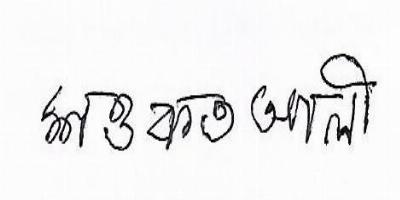 শওকত আলী